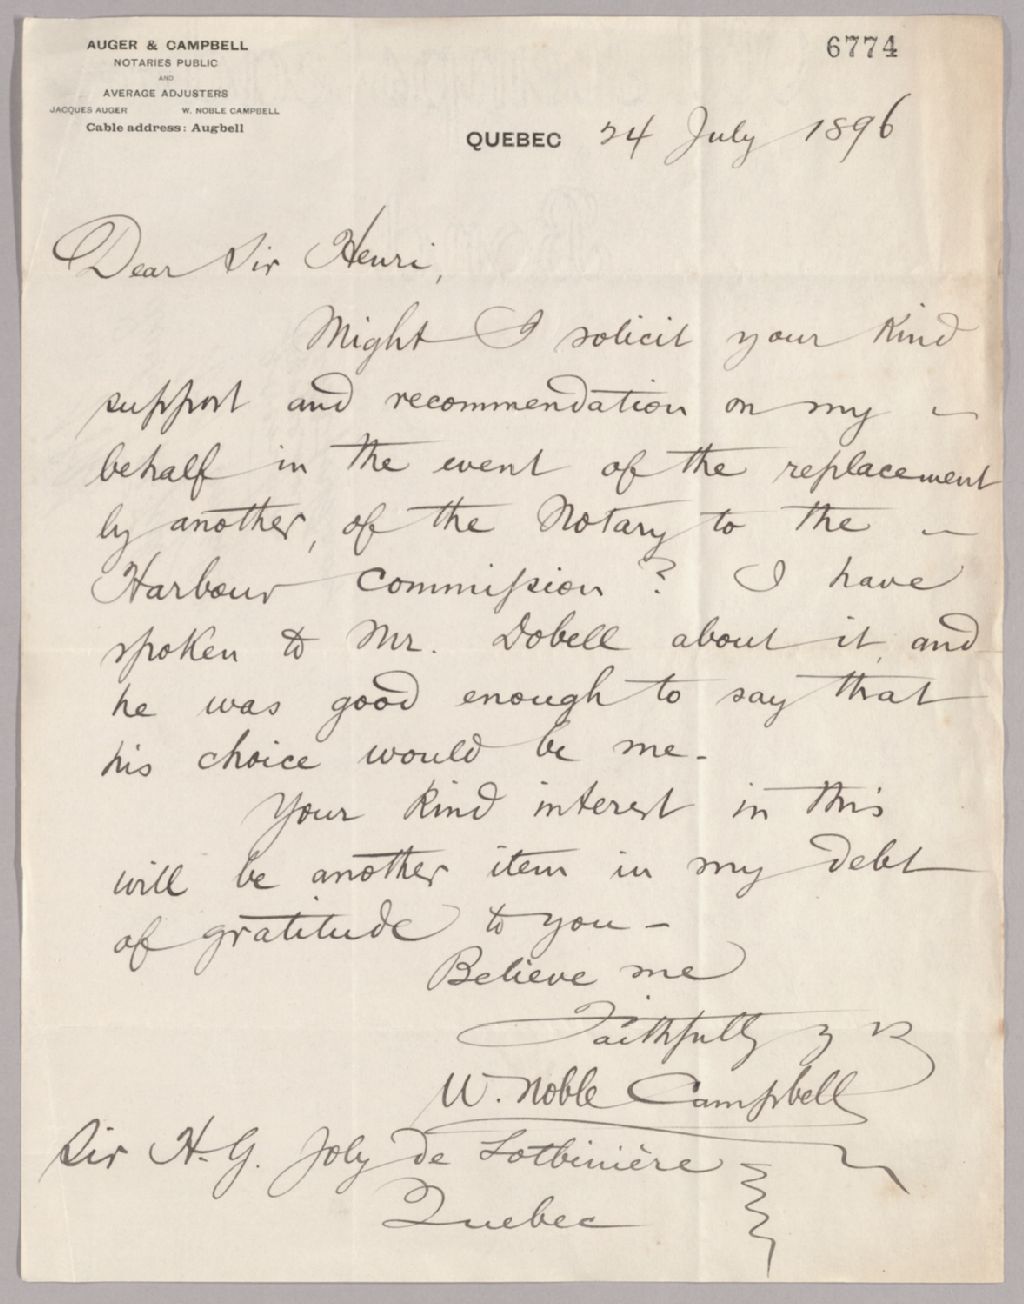 AUGER & CAMPBELL
NOTARIES PUBLIC
AND
AVERAGE ADJUSTERS
JACQUES AUGER W. NOBLE CAMPBELL
Cable address: Augbell
6774
QUEBEC 24 July 1896
Dear Sir Henri,
Might I solicit your kind
support and recommendation on my -
behalf in the event of the replacement
by another, of the Notary to the -
Harbour Commission? I have
spoken to Mr. Dobell about it and
he was good enough to say that
his choice would be me.
Your kind interest in this
will be another item in my debt
of gratitude to you -
Believe me
Faithfully yrs
W. Noble Campbell
Sir H. G. Joly de Lotbinière
Quebec